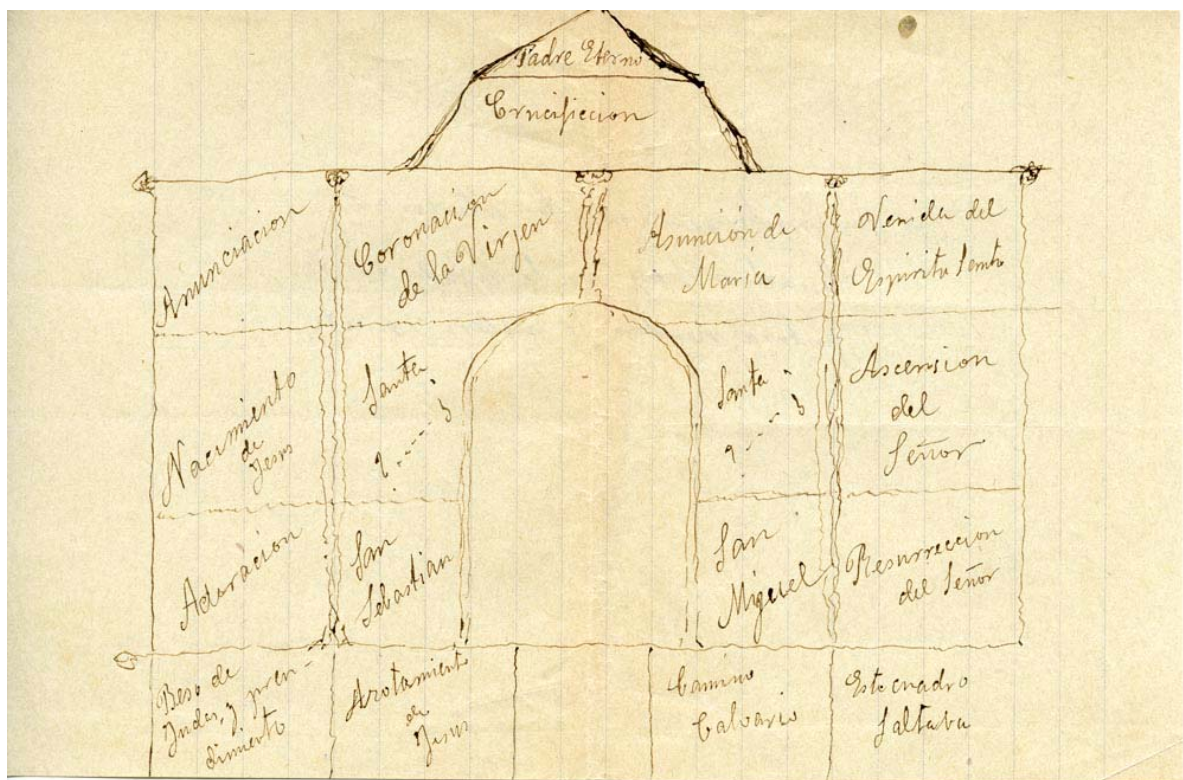 Padre Eterno
Crucificcion
Anunciacion
Coronacion
de la Virjen
Asunción de
Maria
Venida del
Espiritu Santo
Nacimiento
de
Jesus
Santa
Santa
Ascension
del
Señor
Adoracion
San
Sebastian
San
Miguel
Resurreccion
del Señor
Beso de
Judas, y pren-
dimiento
Azotamiento
de
Jesus
Camino
Calvario
Este cuadro
faltava